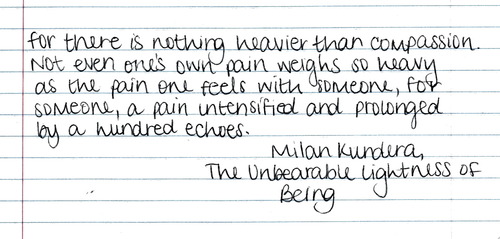 for there is nothing heavier than compassion.
Not even one's own pain weighs so heavy
as the pain one feels with someone, for
someone, a pain intensified and prolonged
by a hundred echoes.
Milan Kundera,
The Unbearable Lightness of
Being